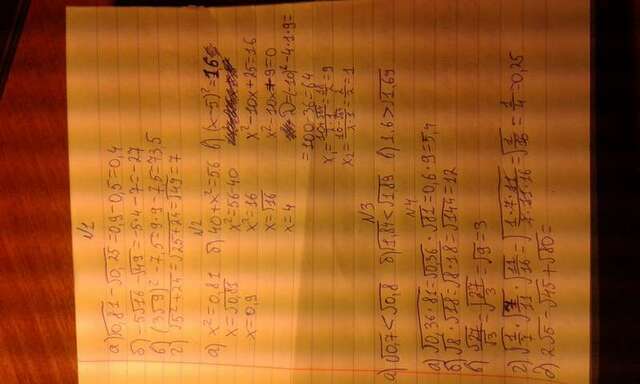 №1
а) √0,81 - √0,25 = 0,9 - 0,5 = 0,4
б) -5√16 - √49 = -5·4 - 7 = -27
в) (3√9)² - 7,5 = 9·9 - 7,5 = 73,5
г) √5²+24 = √25+24 = √49 = 7
№2
а) x² = 0,81 б) 40 + x² = 56 в) (x-5)² = 16
x = √0,81 x² = 56-40 x² - 10x + 25 = 16
x = 0,9 x² = 16 x² - 10x + 9 = 0
x = √16 D = (-10)² - 4·1·9 =
x = 4 = 100 - 36 = 64
x₁ = 10+√64/2·1 = 18/2 = 9
x₂ = 10-√64/2·1 = 2/2 = 1
№3
а) √0,7 < √0,8 б) √1,84 < √1,89 в) 1.6 > √1,69
№4
а) √0,36·81 = √0,36 · √81 = 0,6·9 = 5,4
б) √8 · √18 = √8·18 = √144 = 12
в) √27/√3 = √27/3 = √9 = 3
г) √1/7 · √7/11 · √11/16 = √1·7·11/7·11·16 = √1/16 = 1/4 = 0,25
д) 2√5 - √45 + √80 =